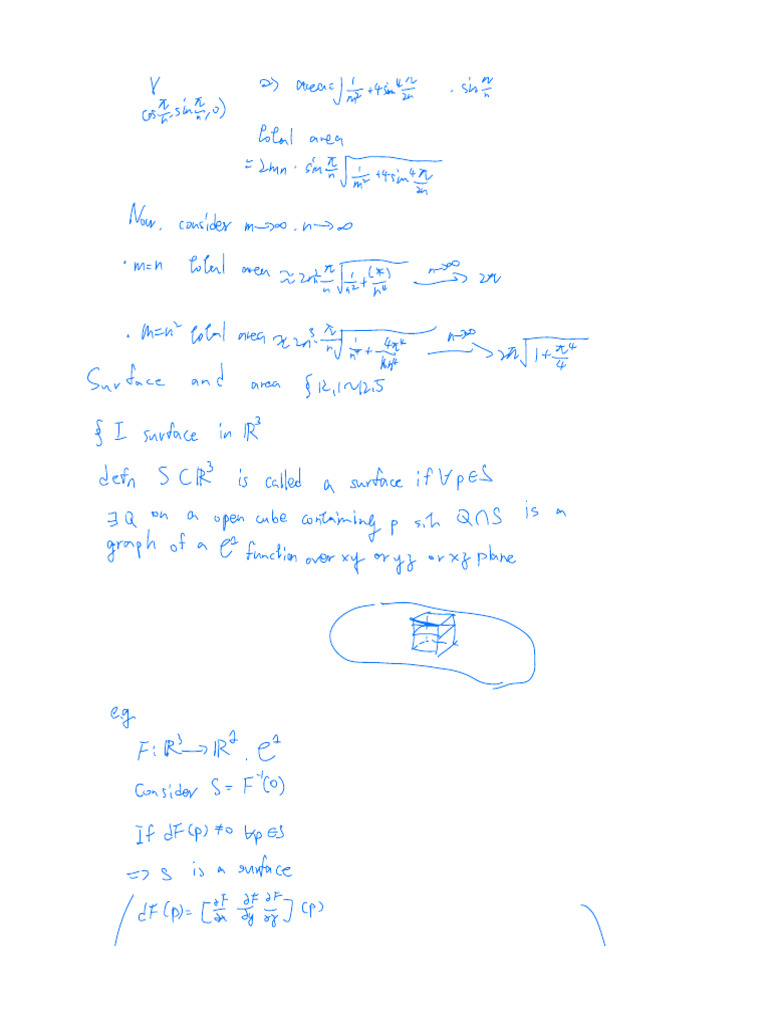 ⇒ area = √(1/m² + 4sin⁴ π/2n) · sin π/n
(cos π/n, sin π/n, 0)
total area
= 2mn · sin π/n √(1/m² + 4sin⁴ π/2n)
Now, consider m→∞, n→∞
· m=n total area ≈ 2n² π/n √(1/n² + (*)/n⁴) n→∞ → 2π
· m=n² total area ≈ 2n³ · π/n √(1/n⁴ + 4π⁴/16n⁴) n→∞ → 2π √(1 + π⁴/4)
Surface and area § 12.1~12.5
§ I surface in ℝ³
defn S⊂ℝ³ is called a surface if ∀p∈S
∃Q on a open cube containing p s.th Q∩S is a
graph of a C¹ function over xy or yz or xz plane
e.g
F: ℝ³→ℝ¹. C¹
Consider S = F⁻¹(0)
If dF(p) ≠0 ∀p∈S
⇒ S is a surface
dF(p) = [∂F/∂x ∂F/∂y ∂F/∂z] (p)